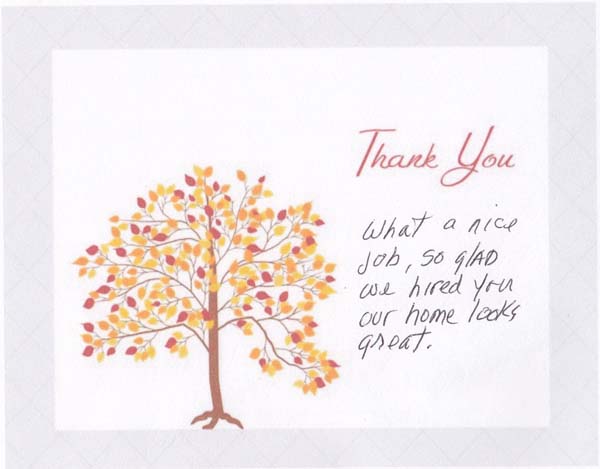 Thank You
What a nice
job, so glAD
we hired you
our home looks
great.